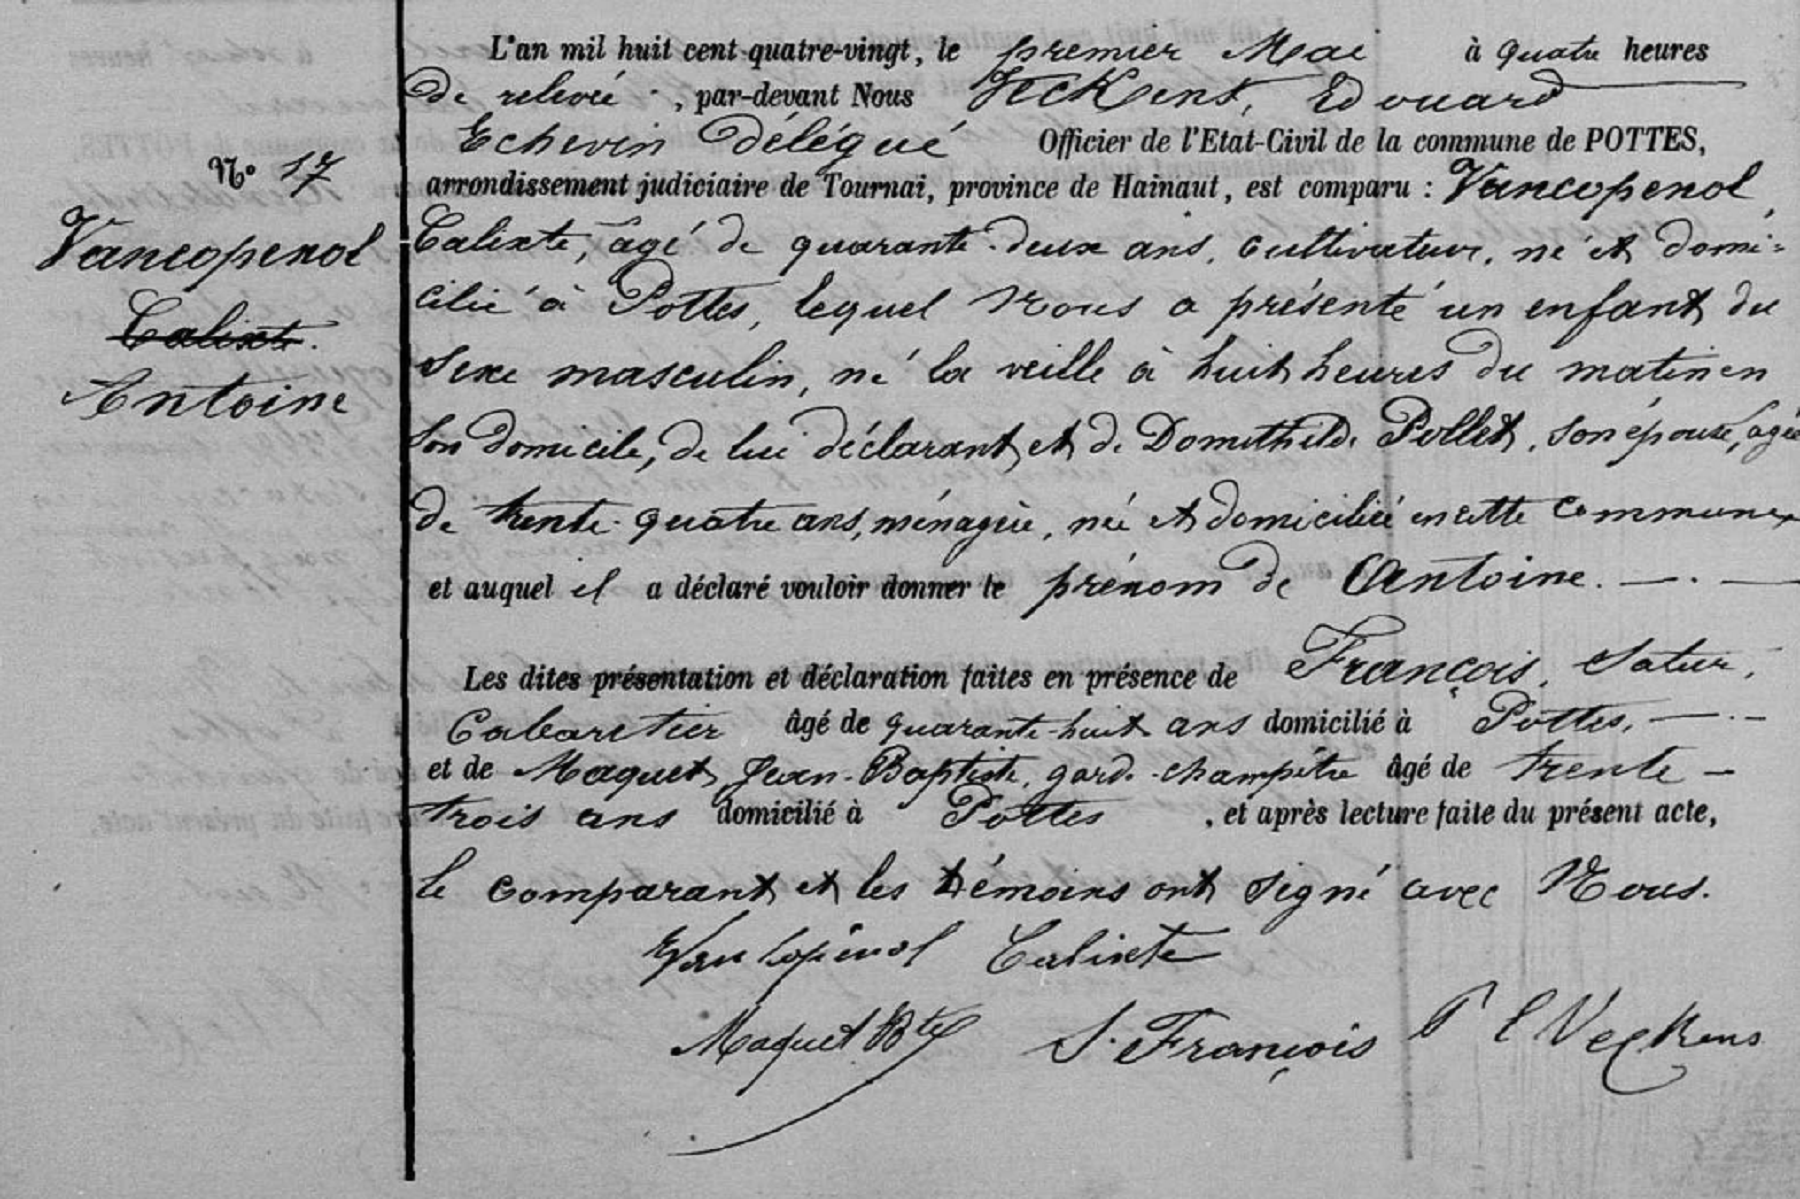 L'an mil huit cent quatre-vingt, le premier Mai à quatre heures
de relevée, par-devant Nous Veckens, Edouard
Echevin Délégué Officier de l'Etat-Civil de la commune de POTTES,
arrondissement judiciaire de Tournai, province de Hainaut, est comparu : Vancopenol,
Calixte, âgé de quarante-deux ans, cultivateur, né et domi-
cilié à Pottes, lequel Nous a présenté un enfant du
sexe masculin, né la veille à huit heures du matin en
son domicile, de lui déclarant et de Domithilde Pollet, son épouse, âgée
de trente-quatre ans, ménagère, née et domiciliée en cette commune,
et auquel il a déclaré vouloir donner le prénom de Antoine. — . —
Les dites présentation et déclaration faites en présence de François, Satur,
Cabaretier âgé de quarante-huit ans domicilié à Pottes, — . —
et de Maquet, Jean-Baptiste, garde-champêtre âgé de trente-
trois ans domicilié à Pottes, et après lecture faite du présent acte,
le comparant et les témoins ont signé avec Nous.
Vancopenol Calixte
Maquet Bte S. François Veckens
No 17
Vancopenol
Calixte.
Antoine